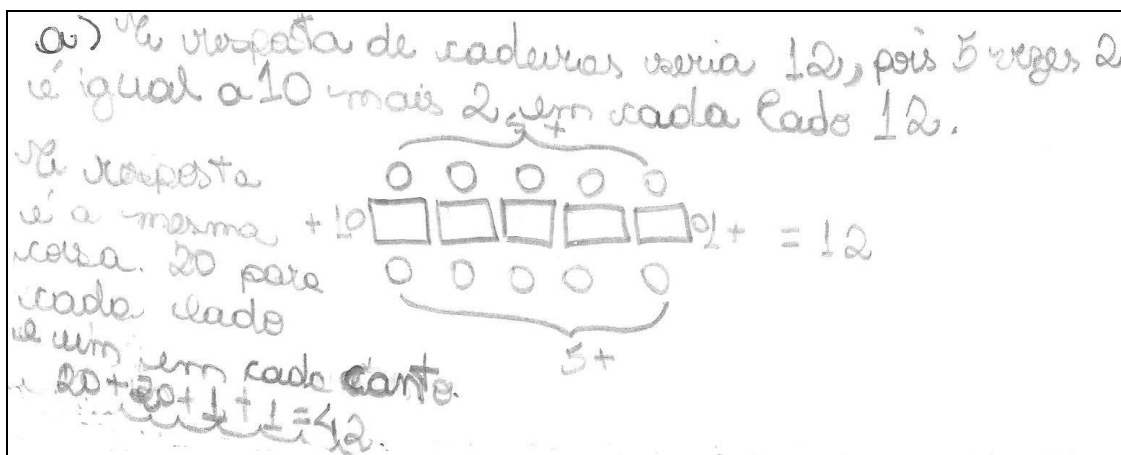 a) A resposta de cadeiras seria 12, pois 5 vezes 2
é igual a 10 mais 2, em cada lado 12.
5 +
A resposta
é a mesma
coisa. 20 para
cada lado
e um em cada canto.
20+20+1+1=42.
+ 1
1 +
= 12
5 +